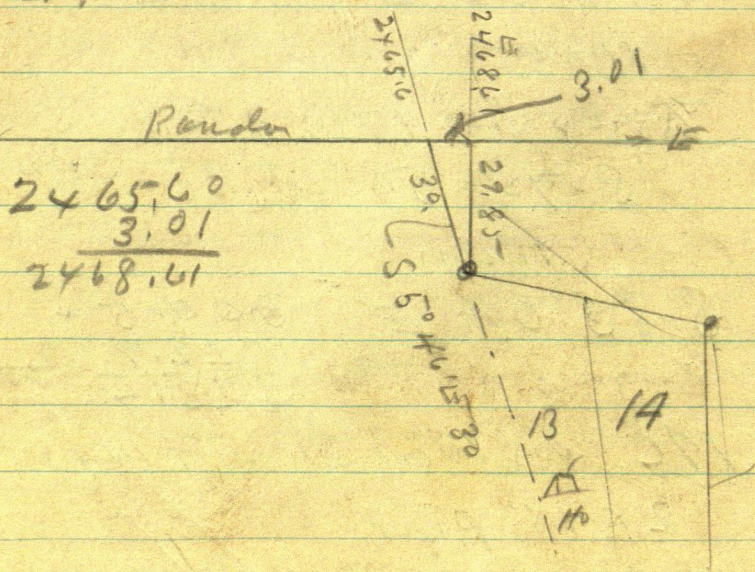 2465.6
E
2468.61
3.01
Random
E
2465.60
3.01
2468.61
30.
29.85
S 5° 46' E 30
13
14